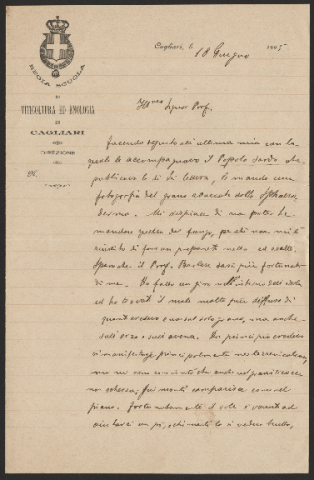 REGIA SCUOLA
DI
VITICOLTURA ED ENOLOGIA
DI
CAGLIARI
DIREZIONE
N.
Cagliari, li 18 Giugno 1905
Signor Prof.
facendo seguito all'ultima mia con la
quale lo accompagnavo il Popolo Sardo che
pubblicava la di Lei lettera, Le mando una
fotografia del grano attaccato dallo
Mi dispiace di non poter
mandare del fungo, perchè non mi è
riuscito di fare un preparato netto ed
Spero che il Prof. sarà più fortunato
di me. Ho fatto un giro nell'interno dell'isola
ed ho trovato il male molto più diffuso di
quanto credevo e non sul solo grano, ma anche
sull'orzo e sull'avena. Da principio credevo
si manifestasse principalmente
ma mi sono convinto che anche nel
piano. Fortunatamente il sole è venuto ad
aiutarci un pò, altrimenti la si vedeva brutta,